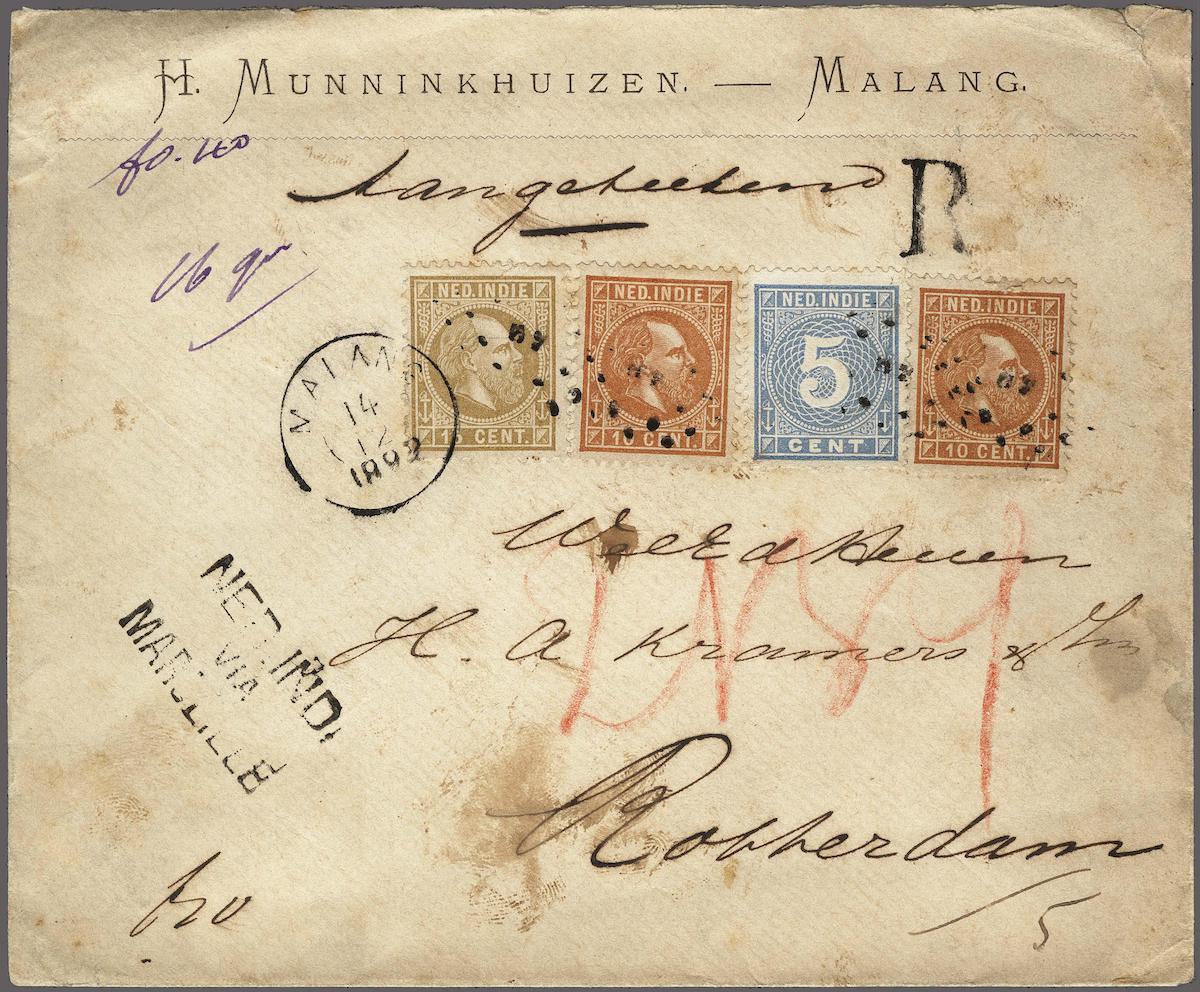 H. MUNNINKHUIZEN. — MALANG.
fo. 40
Aangeteekend
R
16 gr
NED. INDIE
15 CENT.
NED. INDIE
10 CENT.
NED. INDIE
5
CENT
NED. INDIE
10 CENT.
MALANG
14
12
1892
WelEd Heeren
H. A Kramers & Zn
Rotterdam
NED. INDI
VIA
MARSEILLE
fro
5